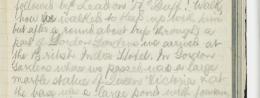 followed by Deacon & Duff. I walk
how we walked to keep up with him
but after a round about trip through a
part of London Gardens we arrived at
the British India Hotel. In London
Gardens where we passed was a large
marble statue of Queen Victoria & at
the base was a large pond with